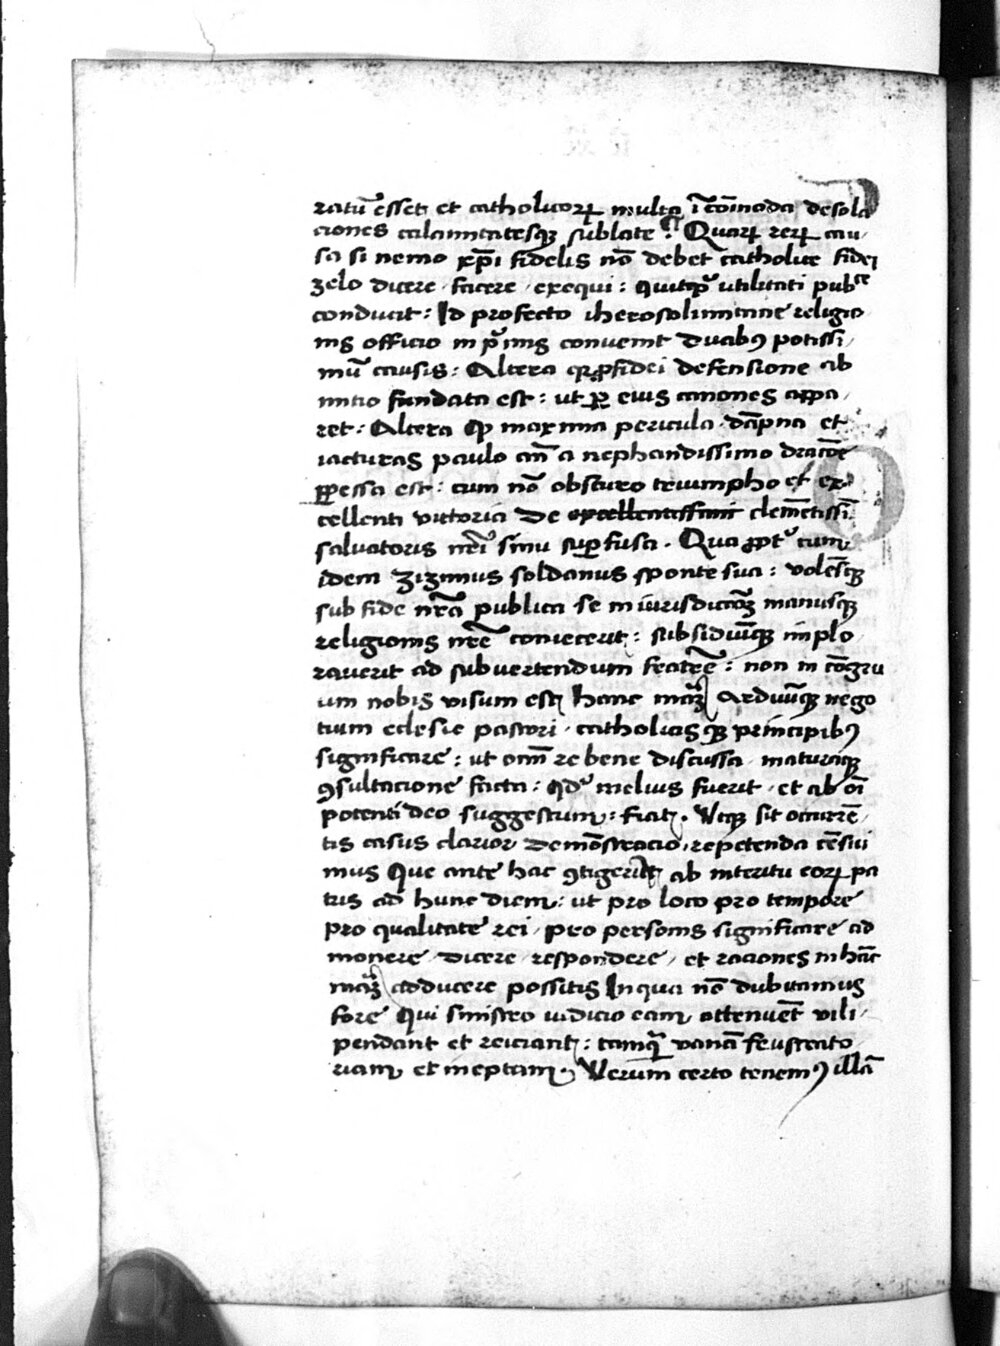 ratū esset et catholicorꝝ multa ī cōmoda desola
ciones calamitatesqꝫ sublate sūt Quarꝝ rerꝝ cau
sa si nemo xp̄i fidelis nō debet catholice fidei
zelo dicere facere exequi : quitqͥd utilitati publᶜᵉ
conducit : Id profecto iherosolimitane religio
nis officio in pͥmis convenit duabꝰ potissi
mū causis : Altera qꝛ ꝓ fidei defensione ab
initio fundata est : ut ꝑ eius canones appa
ret : Altera qꝫ maxima pericula dāpna et
iacturas paulo an̄ a nephandissimo dracōe
ꝑpessa est : cum nō obscuro triumpho et ex
cellenti victoria de excellentissimi clemētissī
salvatoris nr̄i sinu suꝑfusa . Qua ꝓpt̓ cum
idem Zizimus soldanus sponte sua : volēsqꝫ
sub fide nr̄a publica se in iurisdictōꝫ manusqꝫ
religionis nr̄e coniecerit : subsidiūqꝫ implo
raverit ad subvertendum fratrē : non in cōgru
um nobis visum est hanc mateꝫ arduūqꝫ nego
tium eclesie pastori catholicisqꝫ principibꝰ
significare : ut om̄ re bene discussa maturaqꝫ
ꝯsultacione facta : qd̓ melius fuerit et ab oī
potenti deo suggestum : fiat . Utqꝫ sit occurrē
tis casus clarior demōstracio repetenda cēsui
mus Que ante hac ꝯtigerūt ab interitu eorꝝ pa
tris ad hunc diem : ut pro loco pro tempore
pro qualitate rei pro personis significare ad
monere dicere respondere et raciones in hāc
mateꝫ adducere possitis In qua nō dubitamus
fore Qui sinistro iudicio eam attenuēt vili
pendant et reiciant : tamqͣꝫ vanā frustrato
riam et ineptam . Verum certo tenemꝰ illā